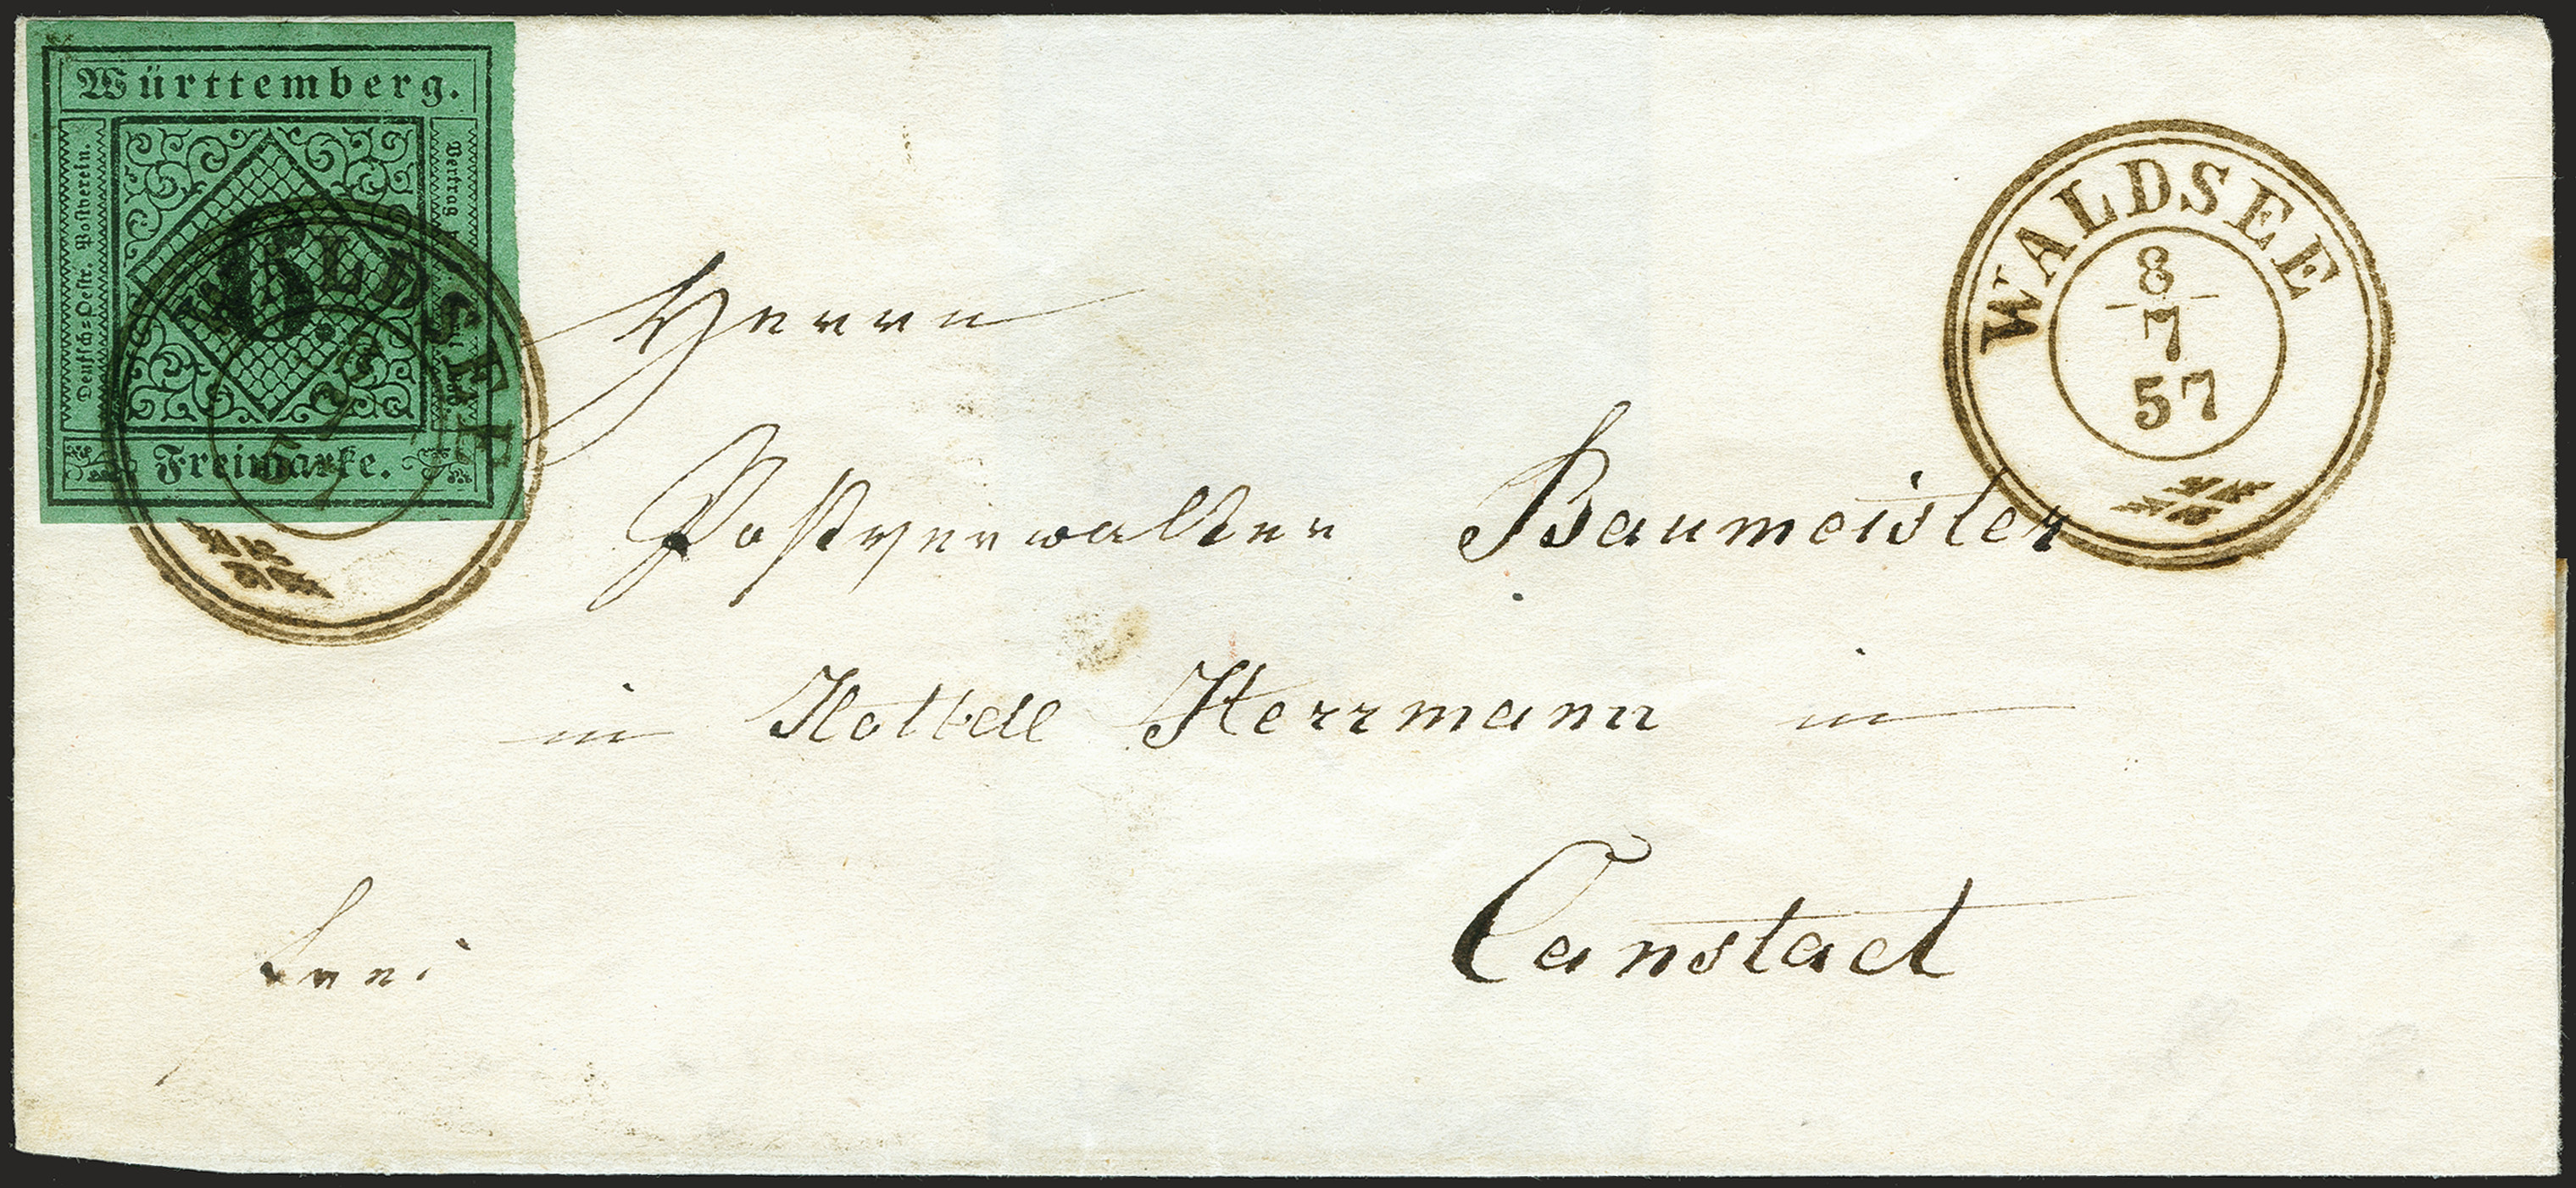 Württemberg.
Deutsch=Oestr. Postverein.
Vertrag
6.
Freimarke.
WALDSEE
WALDSEE
8
7
57
Herrn
Postverwalter Baumeister
in Hottel Herrmann in
Canstadt
frei